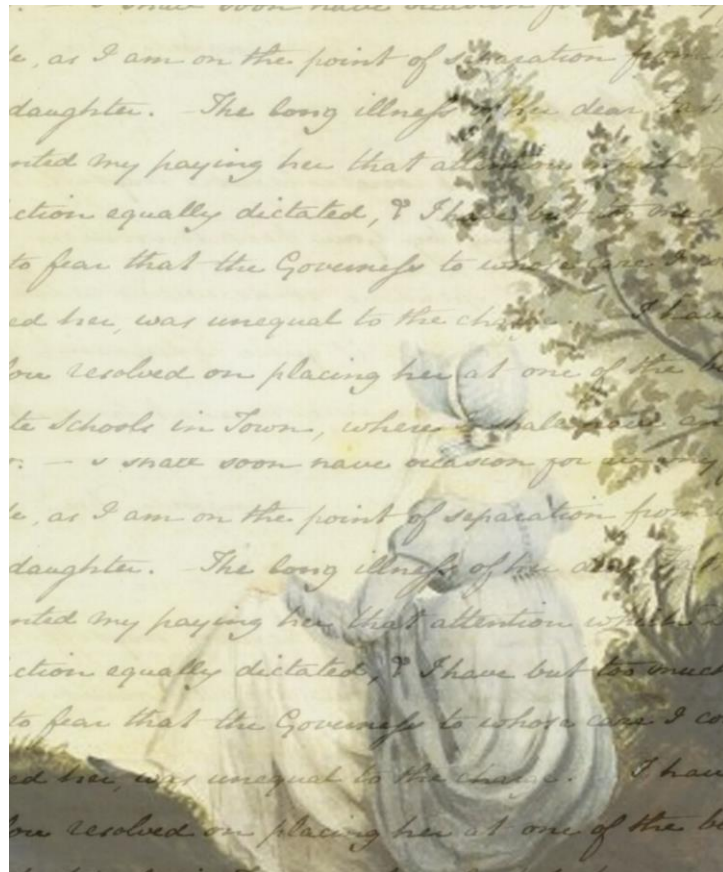 . – I shall soon have occasion for
le, as I am on the point of separation from
daughter. The long illness of her dear
nted my paying her that attention which
ction equally dictated, & I have but too much
to fear that the Governess to whose care I co
ed her, was unequal to the charge. I have
fore resolved on placing her at one of the be
te Schools in Town, where I shall have
. – I shall soon have occasion for
le, as I am on the point of separation from
daughter. The long illness of her dear
nted my paying her that attention which
ction equally dictated, & I have but too much
to fear that the Governess to whose care I co
ed her, was unequal to the charge. I have
fore resolved on placing her at one of the be